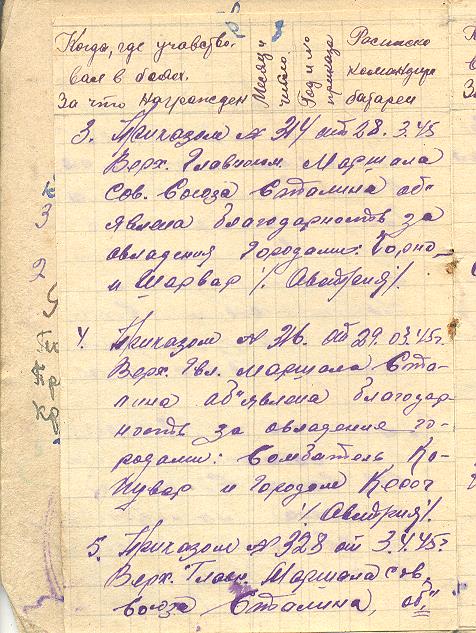 Когда, где учавство-
вал в боях.
За что награжден
Месяц и
число
Год и №
приказа
Росписка
командира
батареи
3. Приказом № 314 от 28.3.45
Верх. Главноком Маршала
Сов. Союза Сталина об"
явлена благодарность за
овладения городами:
и Шарвар /. Авастрия/.
4. Приказом № 326. от 29.03.45г.
Верх. Гвл. маршала Ста-
лина об"явлена благодар-
ность за овладения го-
родами: Сомбатель Ка-
пувар и городом Кесег
/. Авастрия/.
5. Приказом № 328 от 3.4.45г
Верх. Главн. Маршала Сов.
Союза Сталина, об"